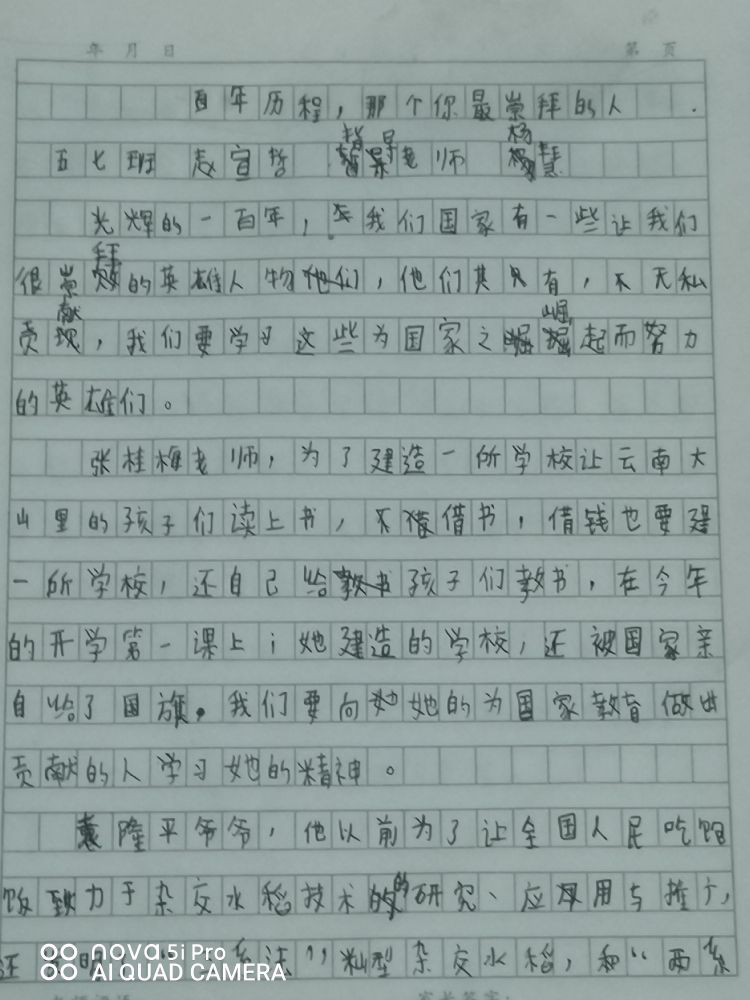 年 月 日 第 页
百年历程，那个你最崇拜的人
五七班 赵宣哲 指导老师 杨慧
光辉的一百年，我们国家有一些让我们
很崇拜的英雄人物他们，他们其具有，不无私
贡献，我们要学习这些为国家之崛起而努力
的英雄们。
张桂梅老师，为了建造一所学校让云南大
山里的孩子们读上书，不借书，借钱也要建
一所学校，还自己给孩子们教书，在今年
的开学第一课上；她建造的学校，还被国家亲
自给了国旗。我们要向她的为国家教育做出
贡献的人学习她的精神。
袁隆平爷爷，他以前为了让全国人民吃饱
饭致力于杂交水稻技术的研究、应用与推广，
还 明 系法”籼型杂交水稻，和“两系
nova5i Pro
AI QUAD CAMERA